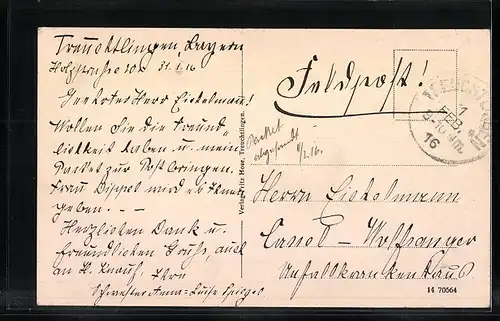 Treuchtlingen, Bayern
31.1.16
Geehrter Herr Eichelmann!
Wollen Sie die Freund-
lichkeit haben u. mein
Packet zur Post bringen.
Frau Dippel wird es Ihnen
geben. - - -
Herzlichen Dank u.
freundlichen Gruß, auch
an H. Knauf, Ihre
Schwester Anna-Luise
Verlag Fritz Hose, Treuchtlingen.
Feldpost!
Packet
abgesandt
1/2.16.
1
FEB.
16
Herrn Eichelmann
Cassel - Wolfsanger
Unfallkrankenhaus
14 70564